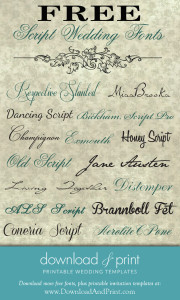 FREE
Script Wedding Fonts
Respective Slanted MissBrooks
Dancing Script Bickham Script Pro
Champignon Exmouth Honey Script
Old Script Jane Austen
Living Together Distemper
ALS Script Brannboll Fet
Coneria Script
download & print
PRINTABLE WEDDING TEMPLATES
Download your free fonts, plus printable invitation templates at:
www.DownloadAndPrint.com